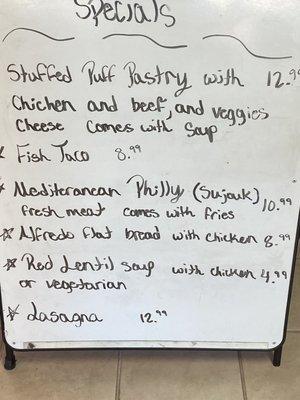 Specials
Stuffed Puff Pastry with 12.99
Chicken and beef, and veggies
Cheese comes with Soup
Fish Taco 8.99
Mediterancan Philly (Sujouk) 10.99
fresh meat comes with fries
Alfredo flat bread with chicken 8.99
Red Lentil Soup with chicken 4.99
or vegetarian
Lasagna 12.99